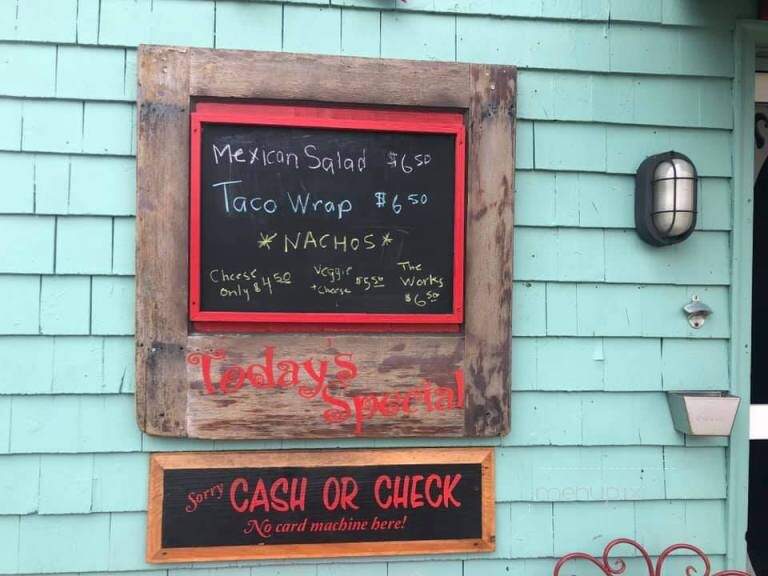 Mexican Salad $6.50
Taco Wrap $6.50
*NACHOS*
Cheese only $4.50
Veggie + Cheese $5.50
The Works $6.50
Today's
Special
Sorry CASH OR CHECK
No card machine here!
menupix